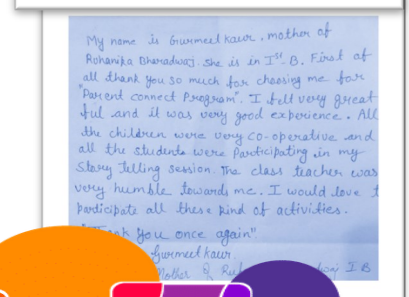 My name is Gurmeet kaur, mother of
Ruhanika Bharadwaj. She is in Ist B. First of
all thank you so much for choosing me for
"Parent connect Program". I fell very great
ful and it was very good experience. All
the children were very co-operative and
all the students were Participating in my
Story Telling session. The class teacher was
very humble towards me. I would love t
participate all these kind of activities.
you once again"
Gurmeet kaur
Mother I B